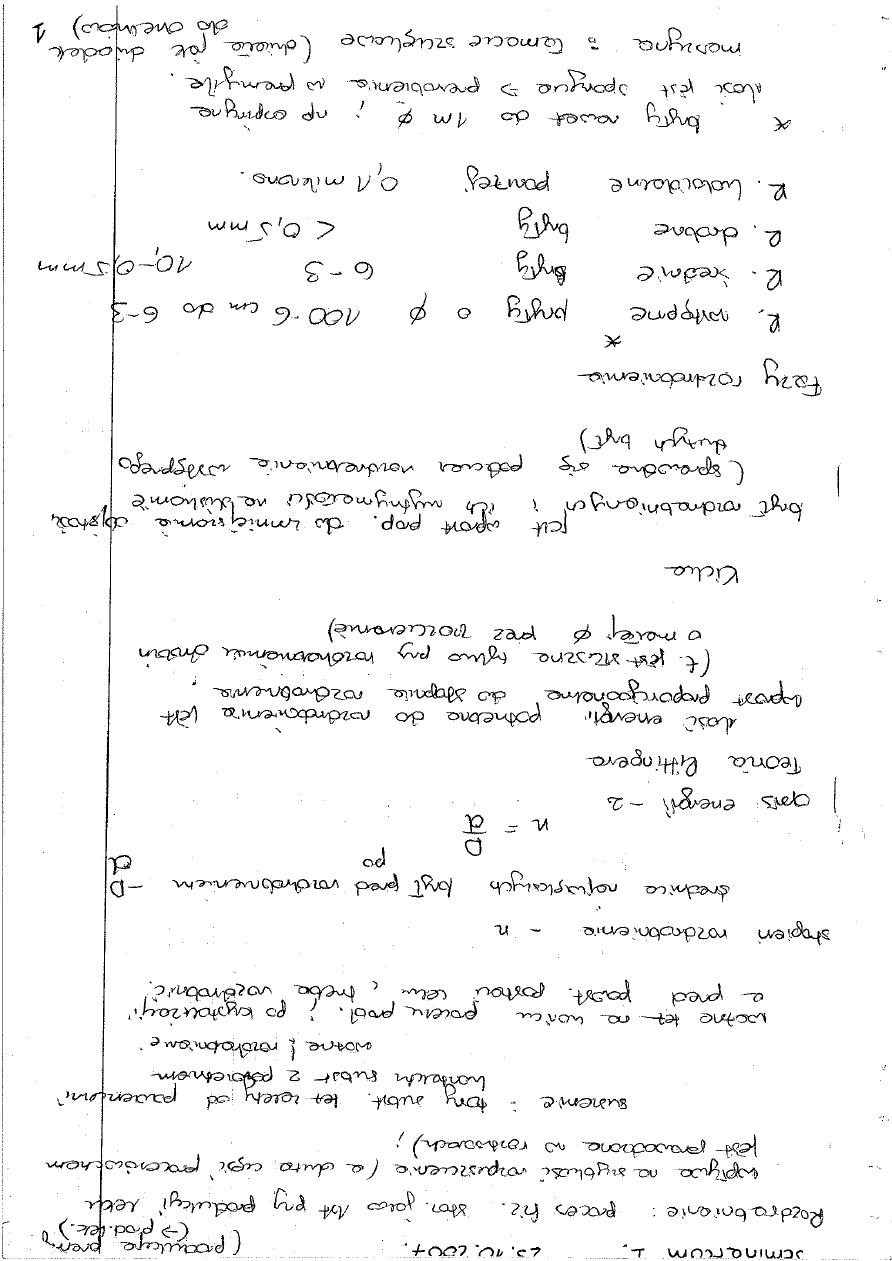 Seminarium 1. 23.10.2007. (produkcja przem
(→ prod. lek.)
Rozdrabnianie : proces fiz. stos. przy produkcji leku
wpływa na szybkość rozpuszczania (a duża część procesów chem
jest prowadzona w roztworach) ;
suszenie : tony subst. też zależy od powierzchni
kontaktu subst z
ważne j. rozdrobnienie.
ważne też na końcu procesu prod. i po krystalizacji
a przed powst. postaci leku , trzeba rozdrobnić.
stopień rozdrobnienia - n
średnica największych brył przed rozdrobnieniem - D
po d
n = D/d
opis energii - 2
Teoria Rittingera
ilość energii potrzebna do rozdrobnienia jest
wprost proporcjonalna do stopnia rozdrobnienia ;
(t. jest słuszna tylko przy rozdrabnianiu drobin
o małej ø przez rozcieranie)
Kicka
jest wprost prop. do zmniejszenia objętości
brył rozdrabnianych i ich wytrzymałości na
(sprawdza się podczas rozdrabniania wstępnego
dużych brył)
Fazy rozdrabniania
*
R. wstępne bryły o ø 100-6 cm do 6-3
R. średnie bryły 6-3 10,-0,5 mm
R. drobne bryły < 0,5 mm
R. koloidalne poniżej 0,1 mikrona.
* bryły nawet do 1m ø ; np aspiryna
ilość jest → przerobienia w przemyśle.
maszyna : łamacze szczękowe (działa jak dziadek
do orzechów) 1